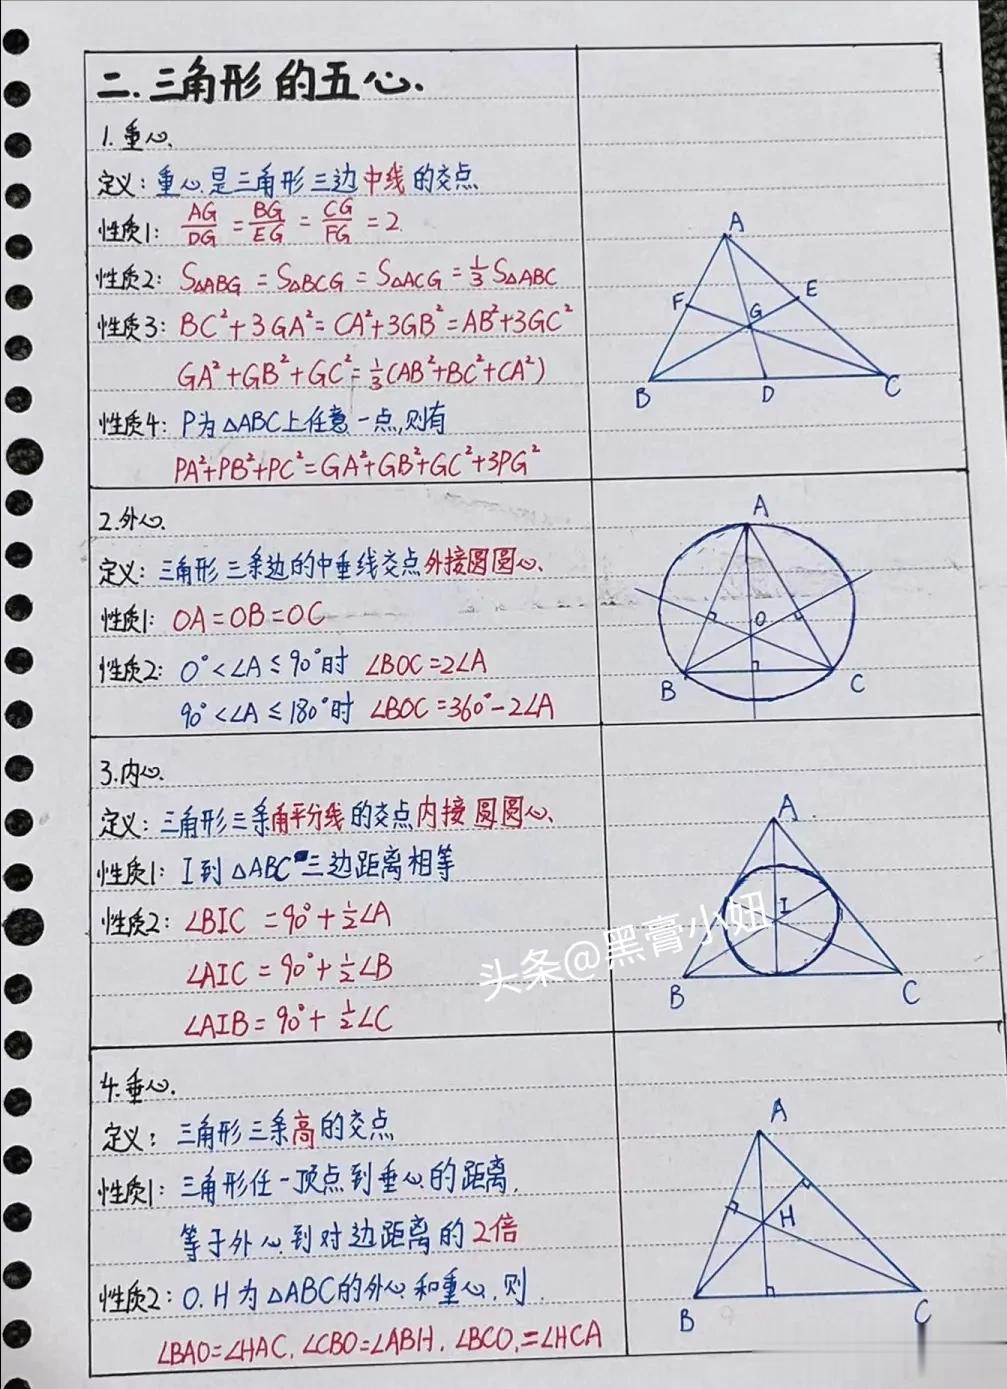 二.三角形的五心.
1.重心.
定义:重心是三角形三边中线的交点
性质1: AG/DG = BG/EG = CG/FG = 2.
性质2: S△ABG = S△BCG = S△ACG = 1/3 S△ABC
性质3: BC²+3GA²=CA²+3GB²=AB²+3GC²
GA²+GB²+GC²=1/3(AB²+BC²+CA²)
性质4: P为△ABC上任意一点,则有
PA²+PB²+PC²=GA²+GB²+GC²+3PG²
A
F
E
G
B
D
C
2.外心.
定义:三角形三条边的中垂线交点外接圆圆心、
性质1: OA=OB=OC
性质2: 0°<∠A≤90°时 ∠BOC=2∠A
90°<∠A≤180°时 ∠BOC=360°-2∠A
A
O
B
C
3.内心.
定义:三角形三条角平分线的交点内接圆圆心、
性质1: I到△ABC三边距离相等
性质2: ∠BIC =90°+1/2∠A
∠AIC =90°+1/2∠B
∠AIB=90°+1/2∠C
A
I
B
C
头条@黑膏小妞
4.垂心.
定义: 三角形三条高的交点
性质1: 三角形任一顶点到垂心的距离,
等于外心到对边距离的2倍
性质2: O.H为△ABC的外心和垂心,则
∠BAO=∠HAC.∠CBO=∠ABH.∠BCO.=∠HCA
A
H
B
C